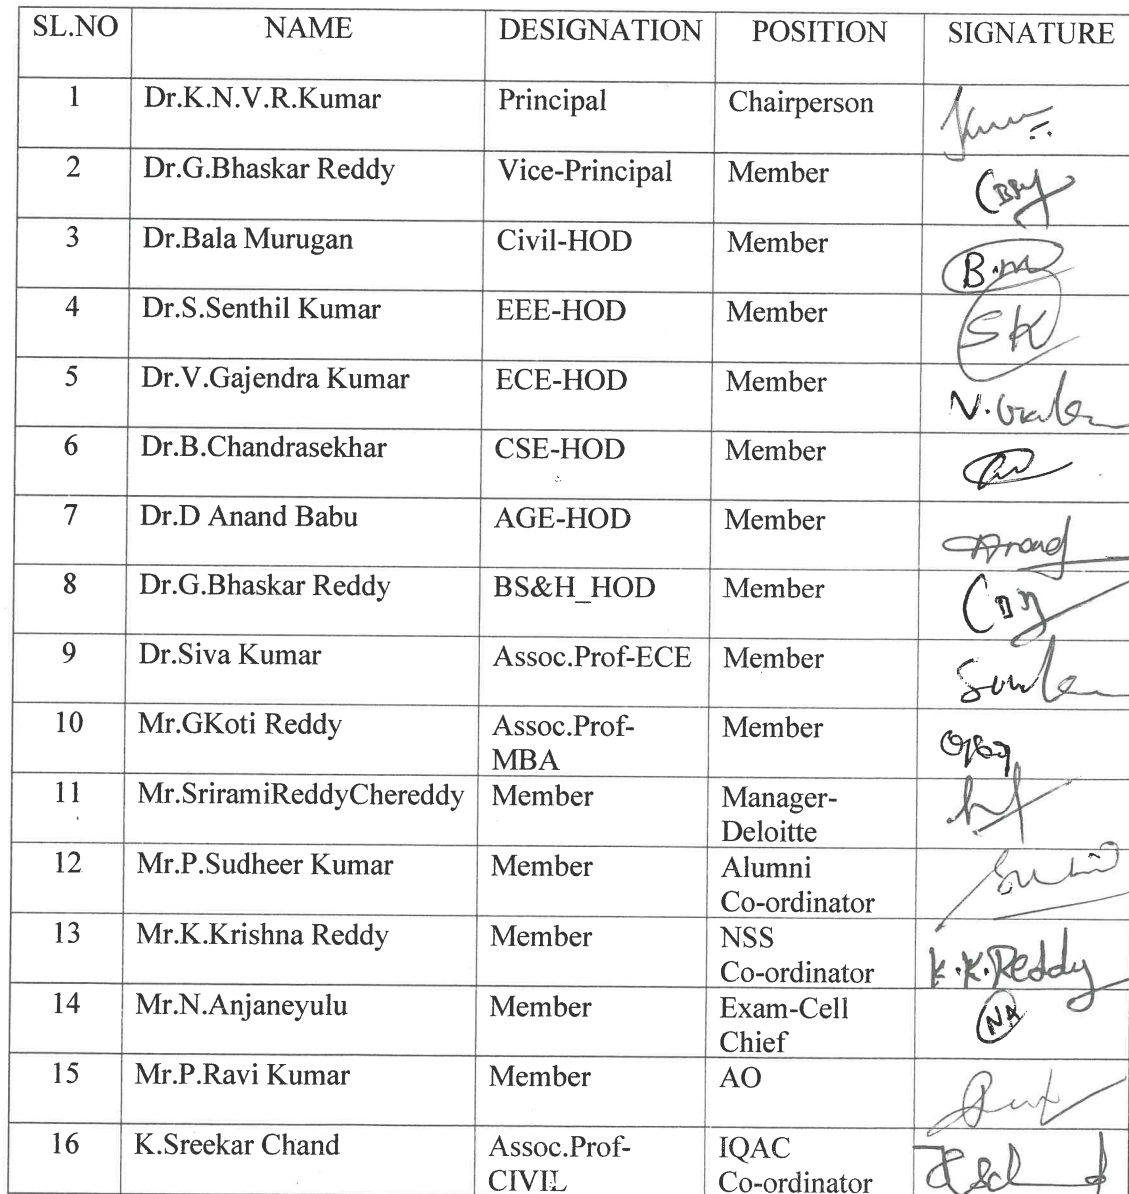 SL.NO NAME DESIGNATION POSITION SIGNATURE
1 Dr.K.N.V.R.Kumar Principal Chairperson
2 Dr.G.Bhaskar Reddy Vice-Principal Member
3 Dr.Bala Murugan Civil-HOD Member B.M
4 Dr.S.Senthil Kumar EEE-HOD Member SK
5 Dr.V.Gajendra Kumar ECE-HOD Member
6 Dr.B.Chandrasekhar CSE-HOD Member
7 Dr.D Anand Babu AGE-HOD Member
8 Dr.G.Bhaskar Reddy BS&H_HOD Member
9 Dr.Siva Kumar Assoc.Prof-ECE Member
10 Mr.GKoti Reddy Assoc.Prof- Member
MBA
11 Mr.SriramiReddyChereddy Member Manager-
Deloitte
12 Mr.P.Sudheer Kumar Member Alumni
Co-ordinator
13 Mr.K.Krishna Reddy Member NSS
Co-ordinator K.K.Reddy
14 Mr.N.Anjaneyulu Member Exam-Cell NA
Chief
15 Mr.P.Ravi Kumar Member AO
16 K.Sreekar Chand Assoc.Prof- IQAC
CIVIL Co-ordinator